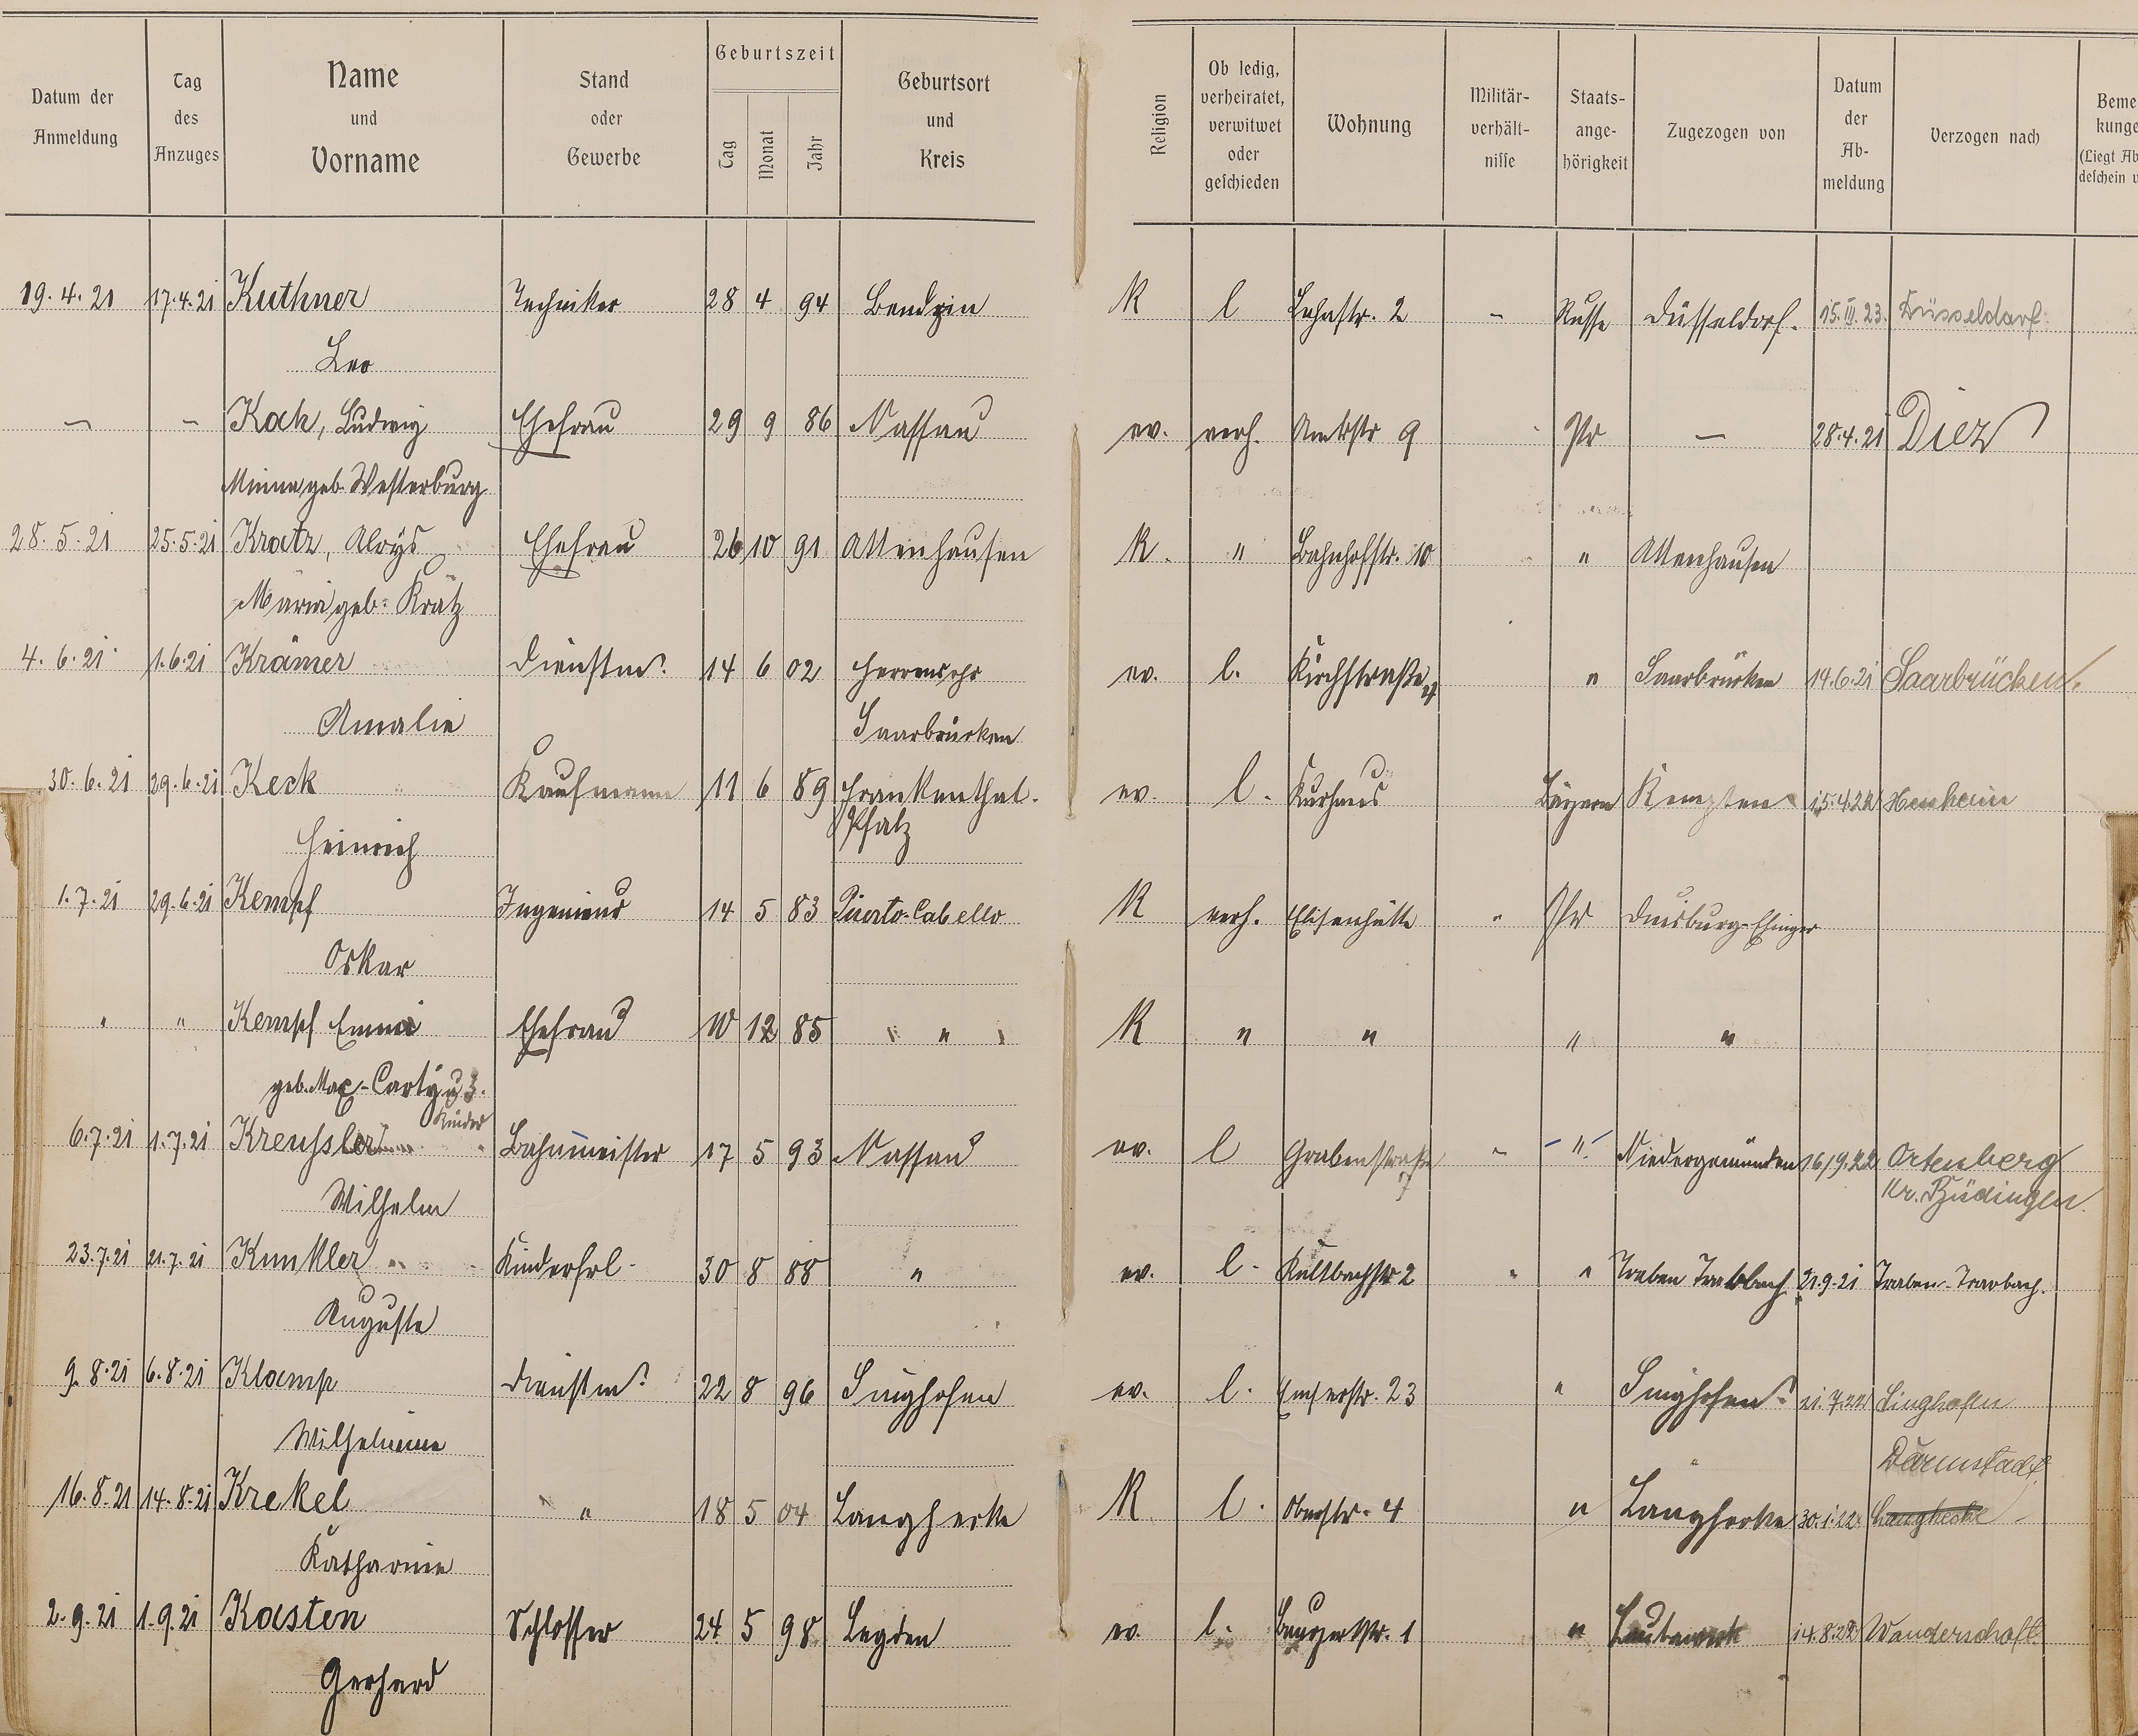 Datum der Anmeldung
Tag des Anzuges
Name und Vorname
Stand oder Gewerbe
Geburtszeit
Tag Monat Jahr
Geburtsort und Kreis
Religion
Ob ledig, verheiratet, verwitwet oder geschieden
Wohnung
Militär-verhält-nisse
Staats-ange-hörigkeit
Zugezogen von
Datum der Ab-meldung
Verzogen nach
Beme kunge (Liegt Ab deschein v
19.4.21 17.4.21 Kuthner Techniker 28 4 94 Bendzin K l Lahnstr. 2 - Russe Düsseldorf. 15.III.23. Düsseldorf
Leo
— – Koch, Ludwig Ehefrau 29 9 86 Nassau ev. verh. Amtstr 9 Pr — 28.4.21 Diez
Minna geb. Westerburg
28.5.21 25.5.21 Kratz, Aloys Ehefrau 26 10 91 Attenhausen K. " Bahnhofstr. 10 " Attenhausen
Maria geb. Kratz
4.6.21 1.6.21 Krämer Dienstm. 14 6 02 Herrensohr ev. l. Kirchstraße " Saarbrücken 14.6.21 Saarbrücken.
Amalie Saarbrücken
30.6.21 29.6.21 Keck Kaufmann 11 6 89 Frankenthal. ev. l. Kurhaus Bayern Kempten 15.4.22
Heinrich Pfalz
1.7.21 29.6.21 Kempf Ingenieur 14 5 83 Puerto-Cabello K verh. Elisenhütte " Pr Duisburg-
Oskar
" " Kempf Emma Ehefrau 10 12 85 " " K " " " "
geb. Max-Carty u 3. Kinder
6.7.21 1.7.21 Kreussler Bahnmeister 17 5 93 Nassau ev. l Grabenstraße 7 " " Niedergemünden 16/9.22 Ortenberg
Wilhelm Kr. Büdingen
23.7.21 21.7.21 Kunkler Kinderfrl. 30 8 88 " ev. l. Kaltbachstr 2 " " Traben Trabbach 21.9.21 Traben-Trarbach.
Auguste
9.8.21 6.8.21 Klamp Dienstm. 22 8 96 Singhofen ev. l. Emserstr. 23 " Singhofen 21.7.22 Singhofen
Wilhelmine
Darmstadt
16.8.21 14.8.21 Krekel " 18 5 04 Langhecke K l. Oberstr. 4 " Langhecke 30.1.22 Langhecke
Katharine
2.9.21 1.9.21 Kasten Schlosser 24 5 98 Legden ev. l. 1 " 14.8.22 Wanderschaft.
Gerhard